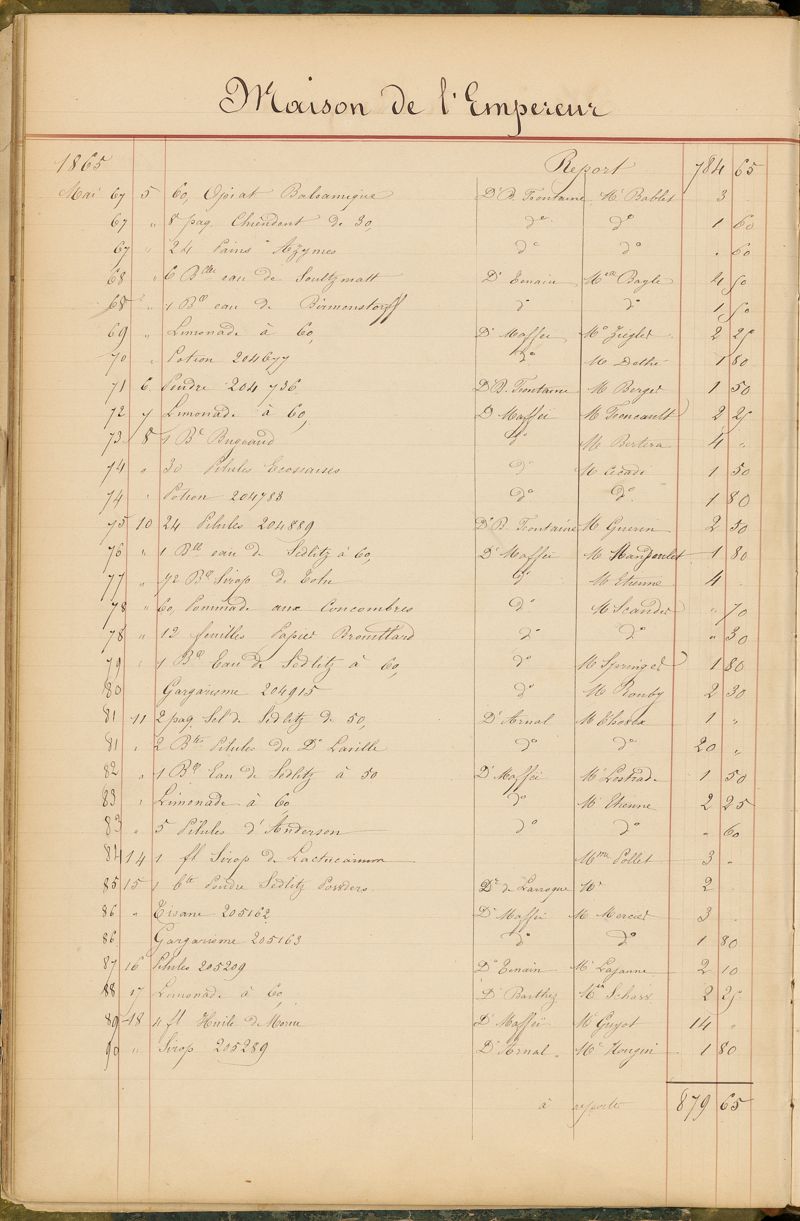 Maison de l'Empereur
1865 Report 784 65
Mai 67 5 60, Opiat Balsamique Dr B. Frontaine Mr Bablet 3
67 " 8 paq. Chiendent de 30, do do 1 60
67 " 24 Pains Azymes do do . 60
68 " 6 Blles eau de Soultzmatt Dr Tenain Mme Bayle 4 50
68 " 1 Bll eau de Birmenstorff do do 1 50
69 " Limonade à 60, Dr Maffei Mr Ziegler 2 25
70 " Potion 204677 do Mr Delhi 1 80
71 6 Poudre 204736 Dr B. Frontaine Mr Berger 1 50
72 7 Limonade à 60, Dr Maffei Mr Froncault 2 25
73 8 1 Be Bugeaud do Mr Bertera 4 "
74 " 30 Pilules Ecossaises do Mr 1 50
74 " Potion 204783 do do 1 80
75 10 24 Pilules 204889 Dr B. Frontaine Mr Guerin 2 50
76 " 1 Bll eau de Sedlitz à 60, Dr Maffei Mr 1 80
77 " 1/2 Be Sirop de Tolu do Mr Etienne 4
78 " 60, Pommade aux Concombres do Mr Scandre " 70
78 " 12 feuilles Papier Brouillard do do " 30
79 " 1 Bll Eau de Sedlitz à 60, do Mr Springer 1 80
80 Gargarisme 204915 do Mr Rouby 2 30
81 11 2 paq. Sel de Sedlitz de 50, Dr Arnal Mr 1 "
81 " 2 Btes Pilules du Dr Laville do do 20 "
82 " 1 Bll Eau de Sedlitz à 50 Dr Maffei Mr Lestrade 1 50
83 " Limonade à 60 do Mr Etienne 2 25
83 " 5 Pilules d'Anderson do do " 60
84 14 1 fl Sirop de Lactucarium Mme Pollet 3 "
85 15 1 bte Poudre Sedlitz Powders Dr de Larroque Mr 2
86 " Tisane 205162 Dr Maffei Mr Mercier 3 .
86 Gargarisme 205163 do do 1 80
87 16 Pilules 205209 Dr Tenain Mr Lajanne 2 10
88 17 Limonade à 60, Dr Barthez Mme Scharr 2 25
89 18 4 fl Huile de Morue Dr Maffei Mr Guyot 14 "
90 " Sirop 205289 Dr Arnal Mr 1 80
à reporter 879 65